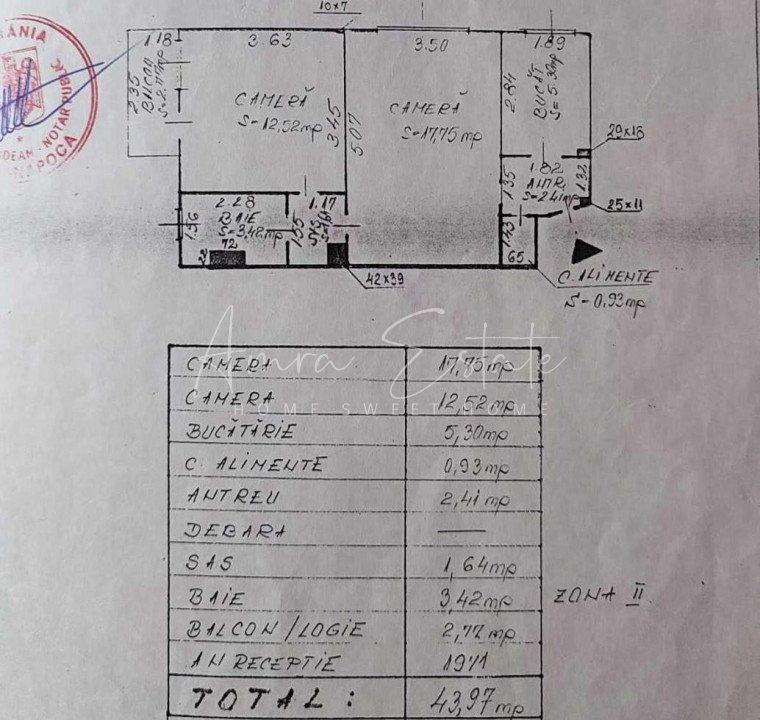 10x7
ÂNIA
NOTAR PUBLIC
NAPOCA
1.18
3.63
3.50
1.89
2.35
BALCON
CAMERĂ
S-12,52mp
3.45
5.07
CAMERĂ
S-17,75mp
2.84
BUCĂT
S=5.30mp
29x13
1.82
ANTR.
S=2.41mp
1.35
1.32
25x11
2.28
1.17
1.56
BAIE
S=3,42mp
1.55
72
65
42x39
C. ALIMENTE
S-0,93mp
Amra Estate
HOME SWEET HOME
CAMERA 17,75mp
CAMERA 12,52mp
BUCĂTĂRIE 5,30mp
C. ALIMENTE 0,93mp
ANTREU 2,41mp
DEBARA —
SAS 1,64mp
BAIE 3,42mp
ZONA II
BALCON/LOGIE 2,77mp
AN RECEPTIE 1971
TOTAL: 43,97mp